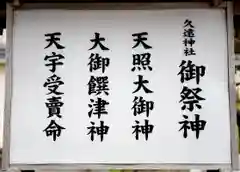 久遠神社
御祭神
天照大御神
大御饌津神
天宇受賣命